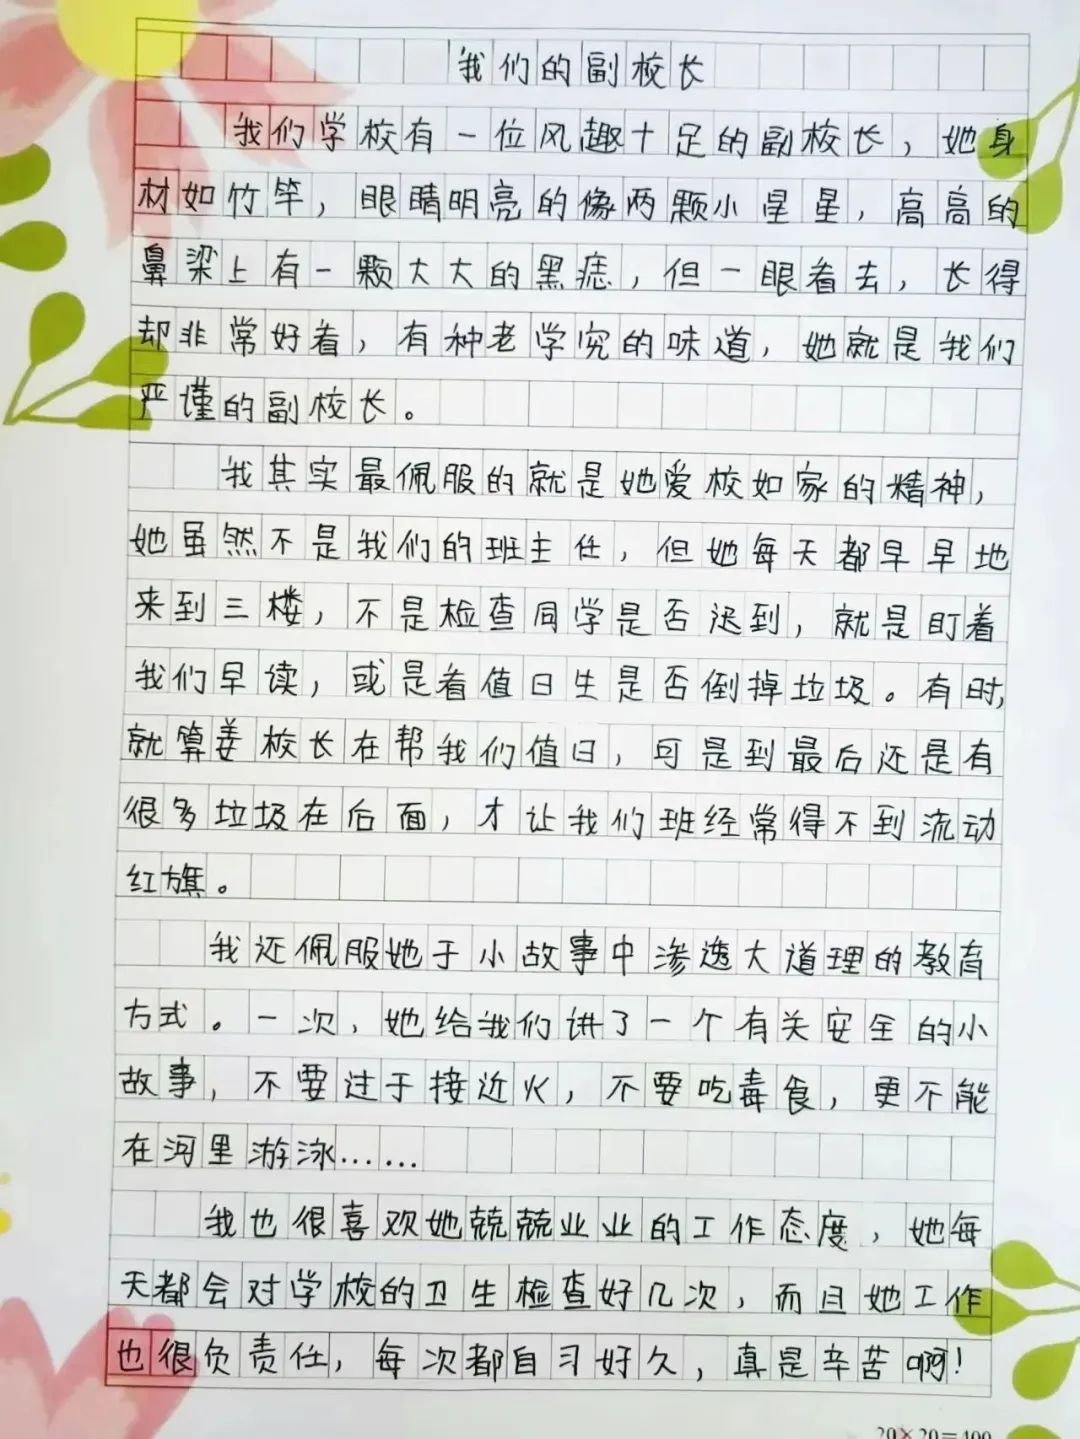 我们的副校长
我们学校有一位风趣十足的副校长，她身
材如竹竿，眼睛明亮的像两颗小星星，高高的
鼻梁上有一颗大大的黑痣，但一眼看去，长得
却非常好看，有种老学究的味道，她就是我们
严谨的副校长。
我其实最佩服的就是她爱校如家的精神，
她虽然不是我们的班主任，但她每天都早早地
来到三楼，不是检查同学是否迟到，就是盯着
我们早读，或是看值日生是否倒掉垃圾。有时，
就算姜校长在帮我们值日，可是到最后还是有
很多垃圾在后面，才让我们班经常得不到流动
红旗。
我还佩服她于小故事中渗透大道理的教育
方式。一次，她给我们讲了一个有关安全的小
故事，不要过于接近火，不要吃毒食，更不能
在河里游泳……
我也很喜欢她兢兢业业的工作态度，她每
天都会对学校的卫生检查好几次，而且她工作
也很负责任，每次都自习好久，真是辛苦啊！
20×20=400